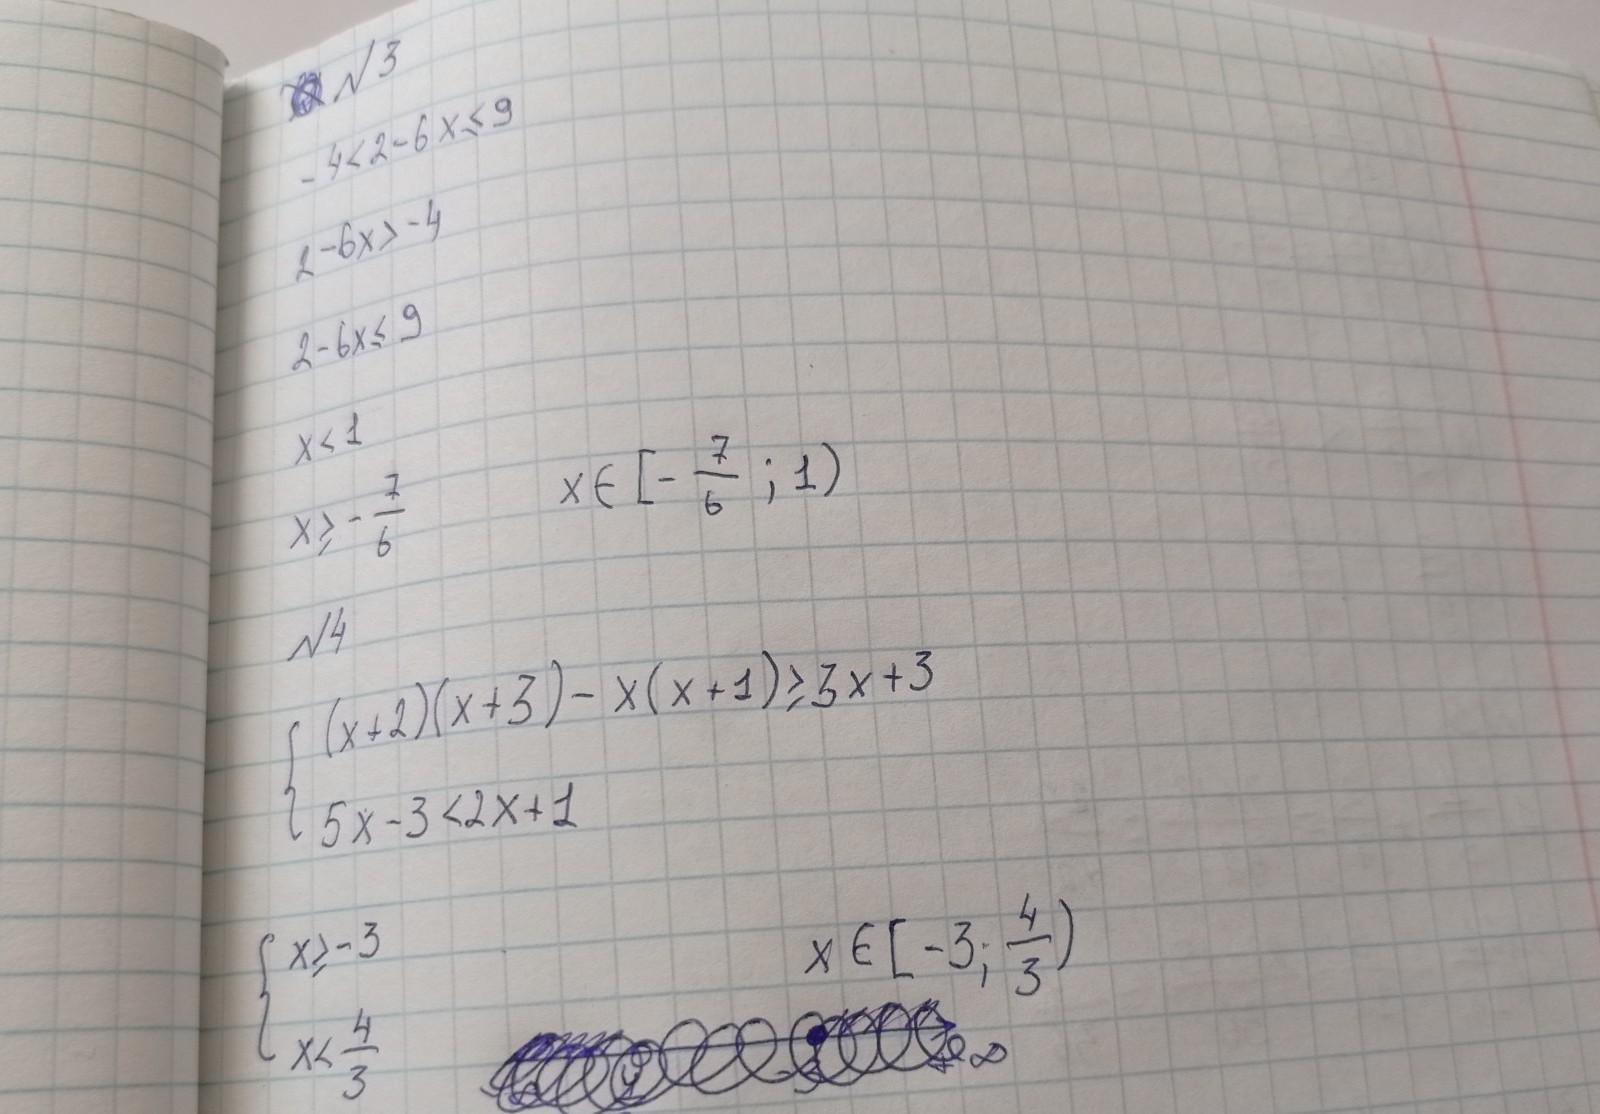 №3
-4<2-6x≤9
2-6x>-4
2-6x≤9
x<1
x≥-7/6 x∈[-7/6;1)
№4
{(x+2)(x+3)-x(x+1)≥3x+3
5x-3<2x+1
{x≥-3 x∈[-3;4/3)
x<4/3